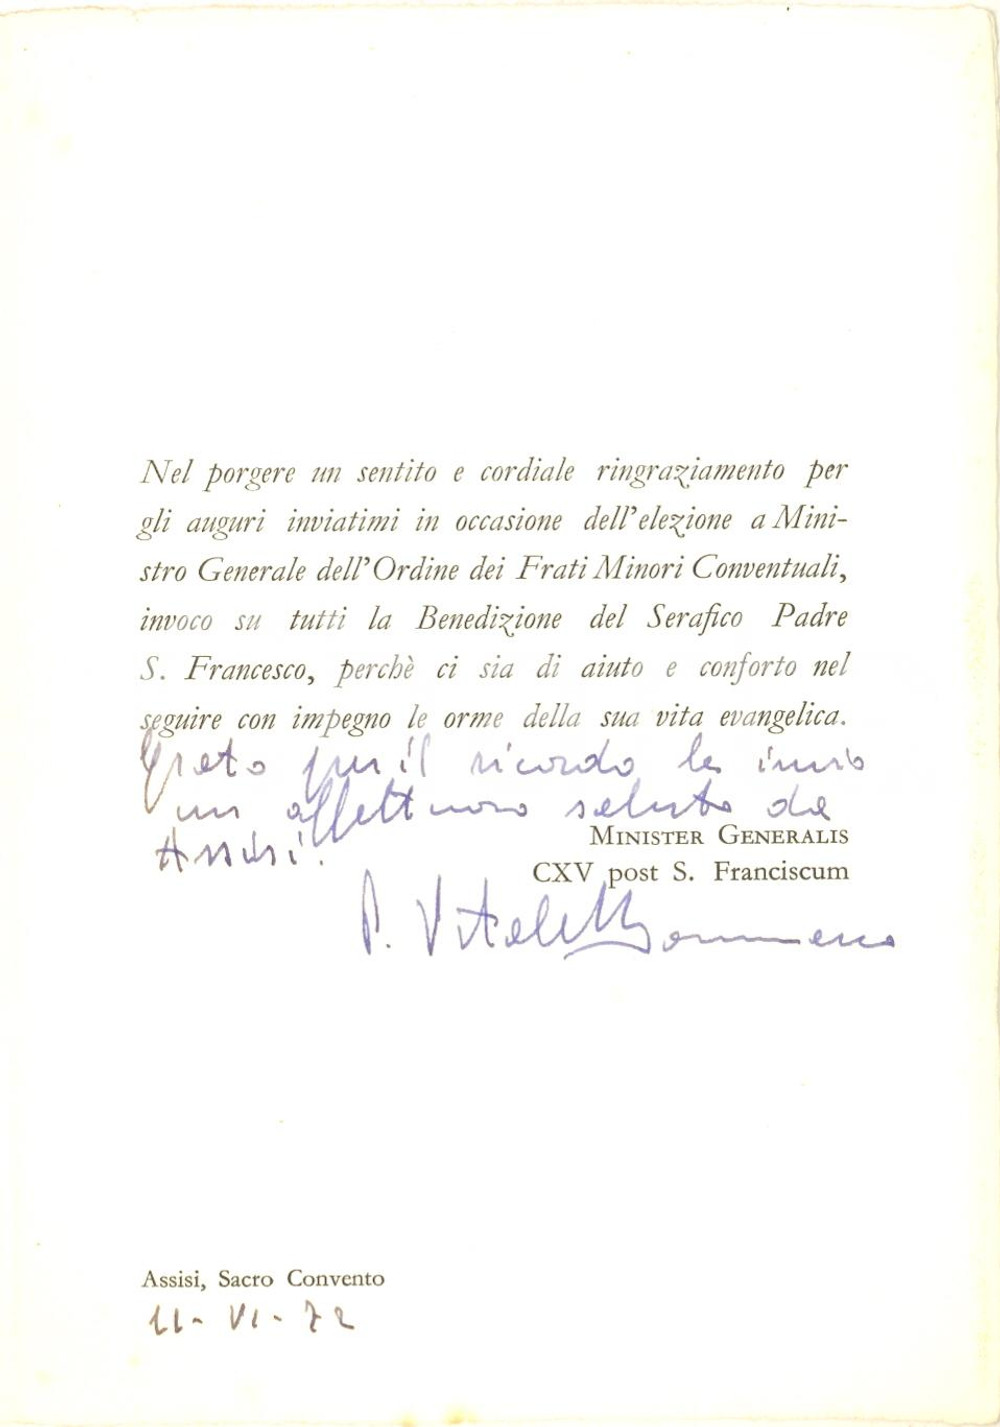 Nel porgere un sentito e cordiale ringraziamento per
gli auguri inviatimi in occasione dell'elezione a Mini-
stro Generale dell'Ordine dei Frati Minori Conventuali,
invoco su tutti la Benedizione del Serafico Padre
S. Francesco, perchè ci sia di aiuto e conforto nel
seguire con impegno le orme della sua vita evangelica.
Grato per il ricordo le invio
un affettuoso saluto da
Assisi.
MINISTER GENERALIS
CXV post S. Franciscum
P. Vitale M. Bommarco
Assisi, Sacro Convento
11-VI-72